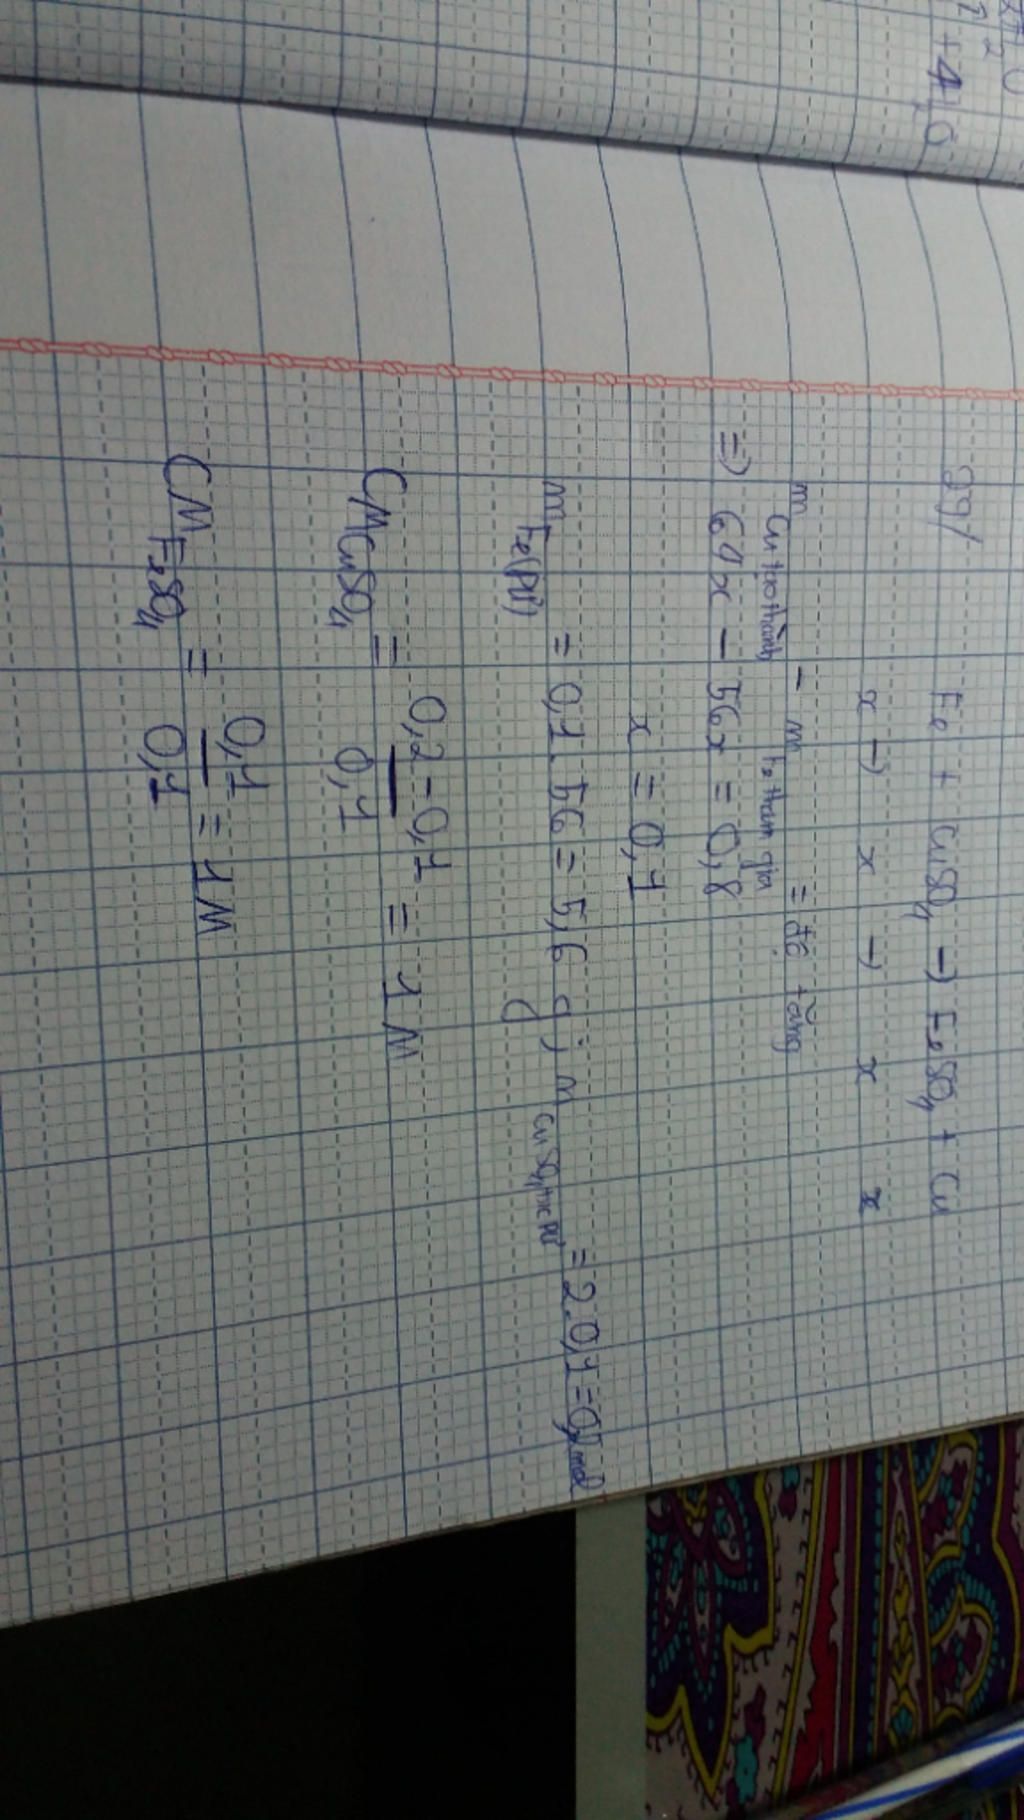 + 4,6
39/ Fe + CuSO4 → FeSO4 + Cu
x → x → x x
m Cu tạo thành − m Fe tham gia = độ tăng
=> 64x − 56x = 0,8
x = 0,1
m Fe(PƯ) = 0,1.56 = 5,6 g ; n CuSO4 trước PƯ = 2.0,1 = 0,2 mol
CM CuSO4 = 0,2 − 0,1 / 0,1 = 1M
CM FeSO4 = 0,1 / 0,1 = 1M